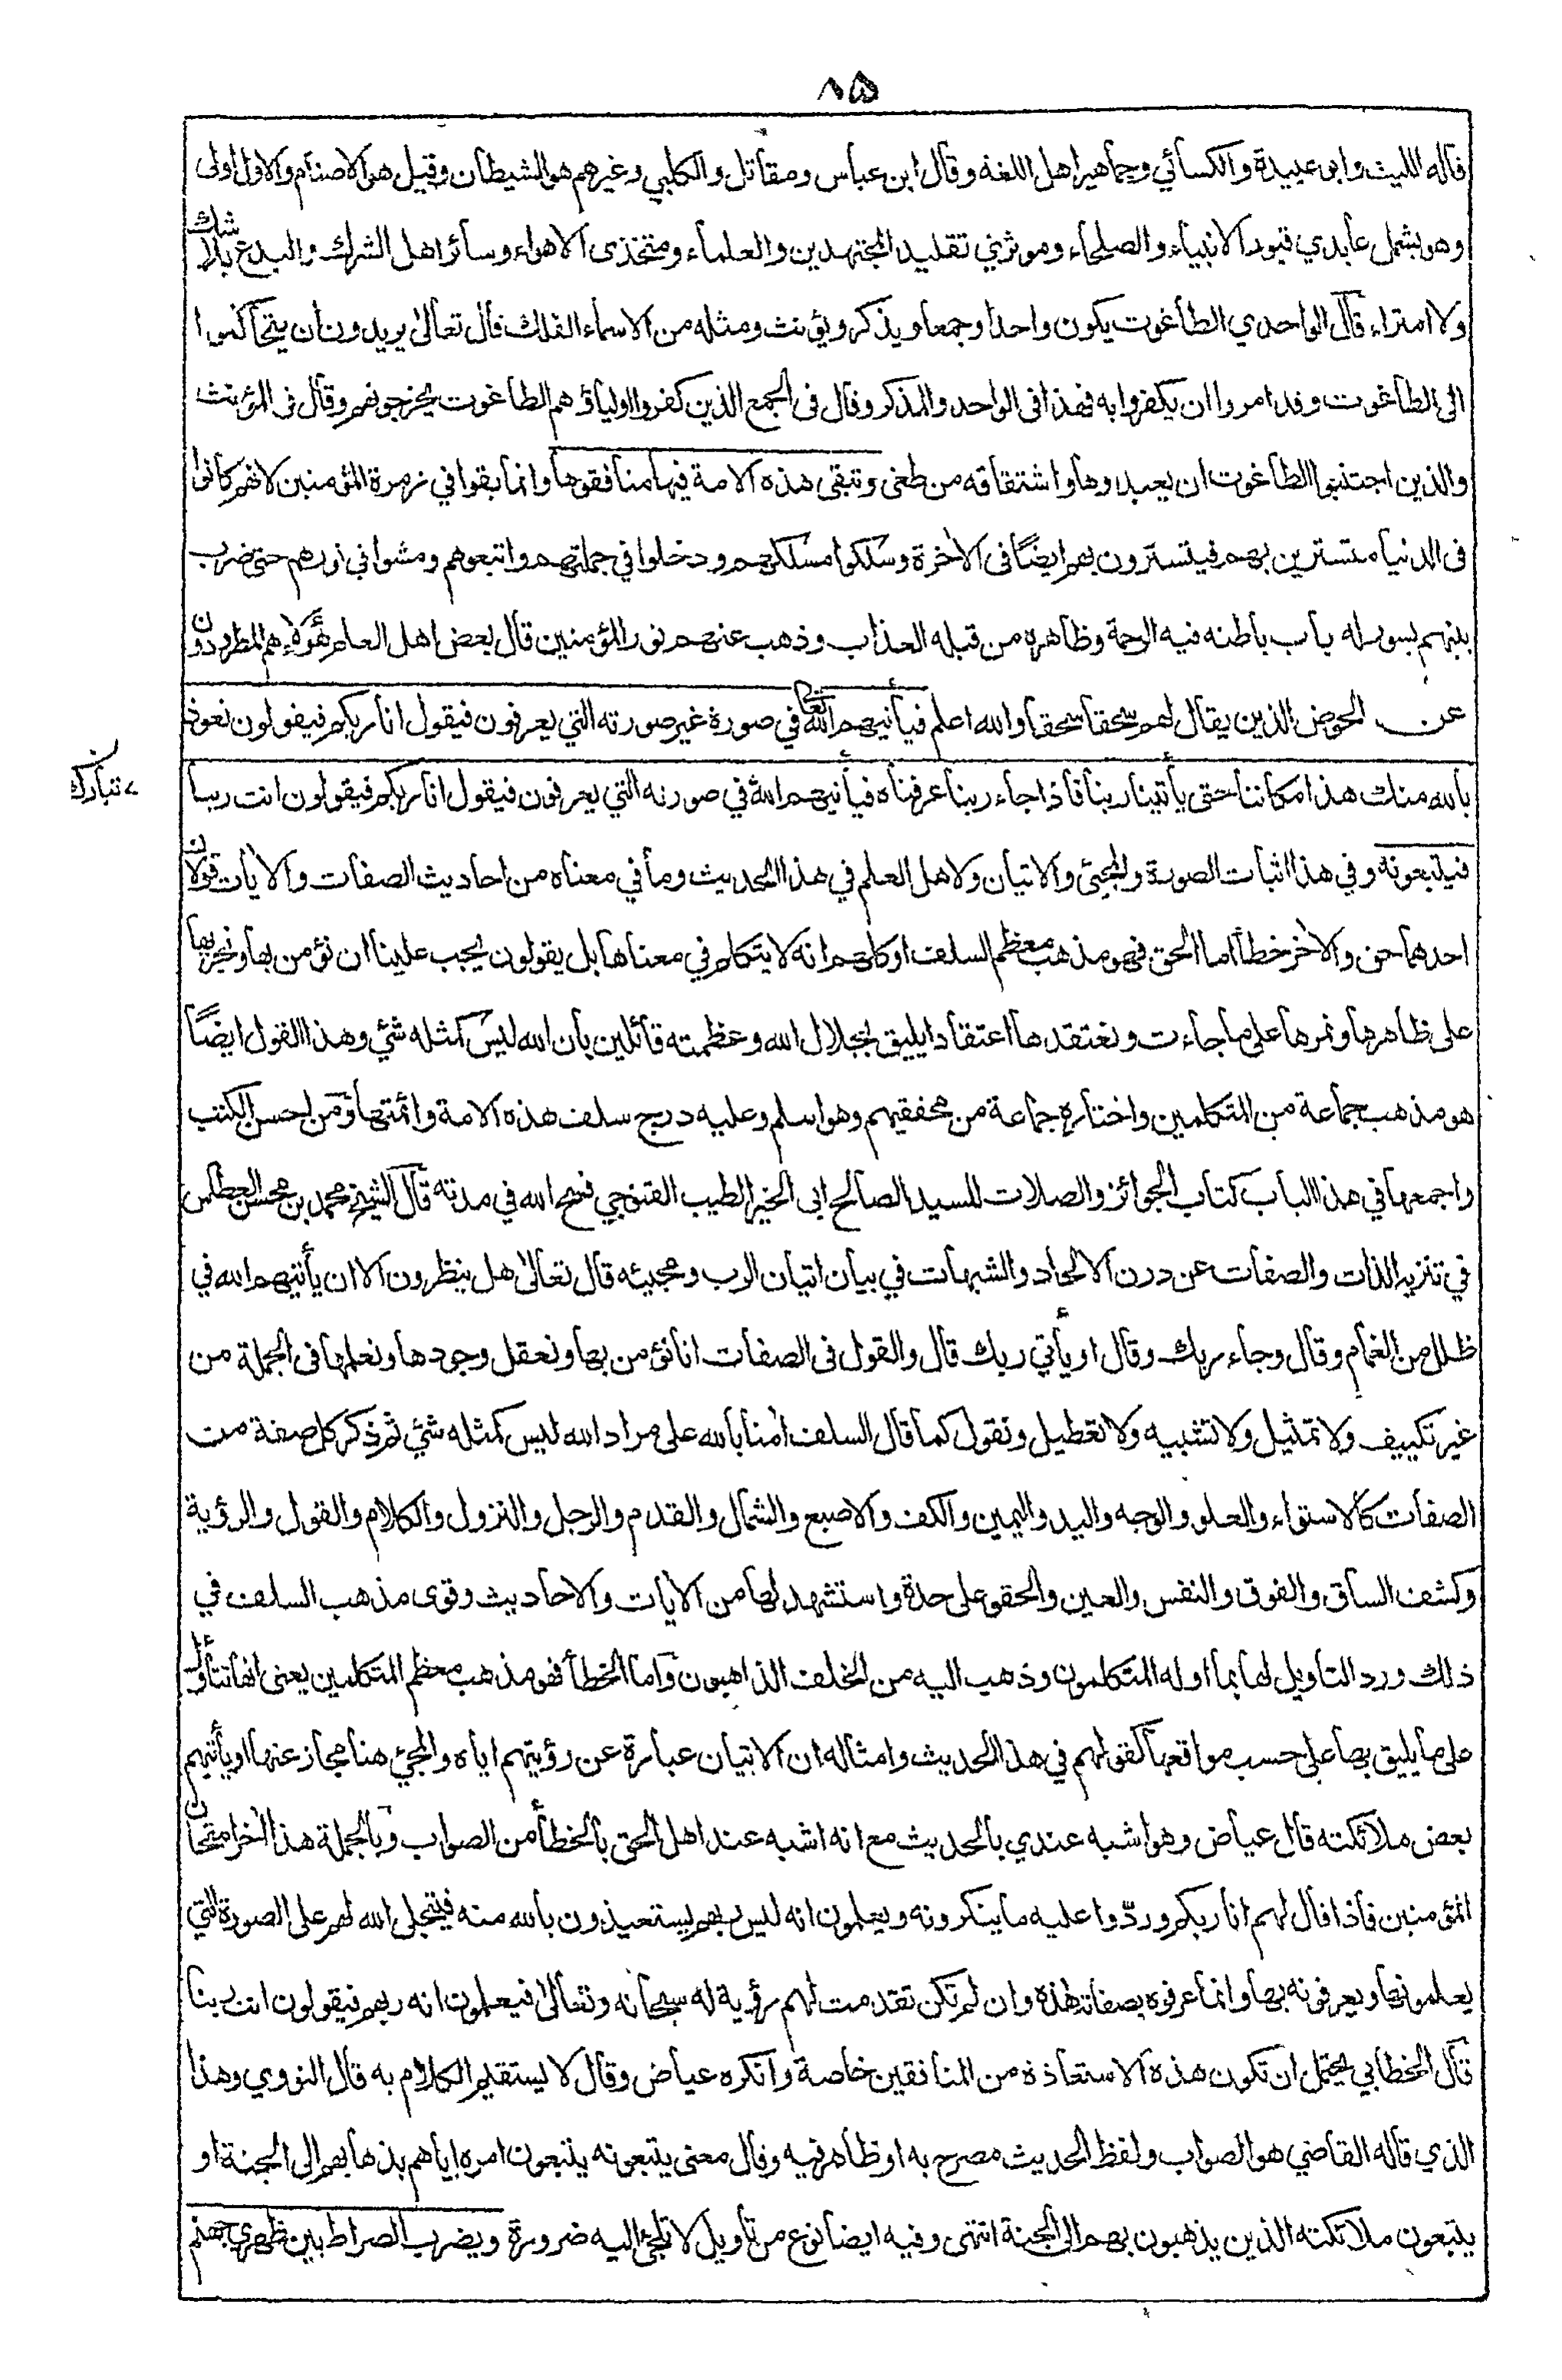 ٨٥
قاله الليث وابو عبيدة والكسائي وجماهير اهل اللغة وقال ابن عباس ومقاتل والكلبي وغيرهم هو الشيطان وقيل هي الاصنام والاول اولى
وهو يشمل عابدي قبور الانبياء والصلحاء وموثري تقليد المجتهدين والعلماء ومتخذى الاهواء وسائر اهل الشرك والبدع بلا شك
ولا امتراء قال الواحدي الطاغوت يكون واحدا وجمعا ويذكر ويؤنث ومثله من الاسماء الفلك قال تعالى يريدون ان يتحاكموا
الى الطاغوت وقد امروا ان يكفروا به فهذا فى الواحد والمذكر وقال فى الجمع الذين كفروا اولياؤهم الطاغوت يخرجونهم وقال فى المؤنث
والذين اجتنبوا الطاغوت ان يعبدوها واشتقاقه من طغى وتبقى هذه الامة فيها منافقوها وانما بقوا في زمرة المؤمنين لانهم كانوا
فى الدنيا متسترين بهم فيتسترون بهم ايضًا فى الاخرة وسلكوا مسلكهم ودخلوا في جملتهم واتبعوهم ومشوا في نورهم حتى ضرب
بينهم بسور له باب باطنه فيه الرحمة وظاهره من قبله العذاب وذهب عنهم نور المؤمنين قال بعض اهل العلم هؤلاء هم المطرودون
عن الحوض الذين يقال لهم سحقا سحقا والله اعلم فيأتيهم الله تعالى في صورة غير صورته التي يعرفون فيقول انا ربكم فيقولون نعوذ
بالله منك هذا مكاننا حتى يأتينا ربنا فاذا جاء ربنا عرفناه فيأتيهم الله في صورته التي يعرفون فيقول انا ربكم فيقولون انت ربنا
تبارك
فيتبعونه وفي هذا اثبات الصورة والمجئ والاتيان ولاهل العلم في هذا الحديث وما في معناه من احاديث الصفات والايات قولان
احدهما حق والاخر خطأ اما الحق فهو مذهب معظم السلف او كلهم انه لا يتكلم في معناها بل يقولون يجب علينا ان نؤمن بها ونجريها
على ظاهرها ونمرها على ما جاءت ونعتقد لها اعتقادا يليق بجلال الله وعظمته قائلين بان الله ليس كمثله شئ وهذا القول ايضًا
هو مذهب جماعة من المتكلمين واختاره جماعة من محققيهم وهو اسلم وعليه درج سلف هذه الامة وائمتها ومن احسن الكتب
واجمعها في هذا الباب كتاب الجوائز والصلات للسيد الصالح ابى الخير الطيب القنوجي فسح الله في مدته قال الشيخ محمد بن محسن العطاس
في تنزيه الذات والصفات عن درن الالحاد والشبهات في بيان اتيان الرب ومجيئه قال تعالى هل ينظرون الا ان يأتيهم الله في
ظلل من الغمام وقال وجاء ربك وقال او يأتي ربك قال والقول فى الصفات انا نؤمن بها ونعقل وجودها ونعلمها فى الجملة من
غير تكييف ولا تمثيل ولا تشبيه ولا تعطيل ونقول كما قال السلف امنا بالله على مراد الله ليس كمثله شئ ثم ذكر كل صفة من
الصفات كالاستواء والعلو والوجه واليد واليمين والكف والاصبع والشمال والقدم والرجل والنزول والكلام والقول والرؤية
وكشف الساق والفوق والنفس والعين والحقو على حدة واستشهد لها من الايات والاحاديث وقوى مذهب السلف في
ذلك ورد التاويل لها بما اوله المتكلمون وذهب اليه من الخلف الذاهبون واما الخطأ فهو مذهب معظم المتكلمين يعنى انها تتأول
على ما يليق بها على حسب مواقعها كقولهم في هذا الحديث وامثاله ان الاتيان عبارة عن رؤيتهم اياه والمجئ هنا مجاز عنها او يأتيهم
بعض ملائكته قال عياض وهو اشبه عندي بالحديث مع انه اشبه عند اهل الحق بالخطأ من الصواب وبالجملة هذا اخر امتحان
المؤمنين فاذا قال لهم انا ربكم وردّوا عليه ما ينكرونه ويعلمون انه ليس ربهم يستعيذون بالله منه فيتجلى الله لهم على الصورة التي
يعلمونها ويعرفونه بها وانما عرفوه بصفاته هذه وان لم تكن تقدمت لهم رؤية له سبحانه وتعالى فيعلمون انه ربهم فيقولون انت ربنا
قال الخطابي يحتمل ان تكون هذه الاستعاذة من المنافقين خاصة وانكره عياض وقال لا يستقيم الكلام به قال النووي وهذا
الذي قاله القاضي هو الصواب ولفظ الحديث مصرح به او ظاهر فيه وقال معنى يتبعونه يتبعون امره اياهم بذهابهم الى الجنة او
يتبعون ملائكته الذين يذهبون بهم الى الجنة انتهى وفيه ايضا نوع من تاويل لا تلجئ اليه ضرورة ويضرب الصراط بين ظهري جهنم